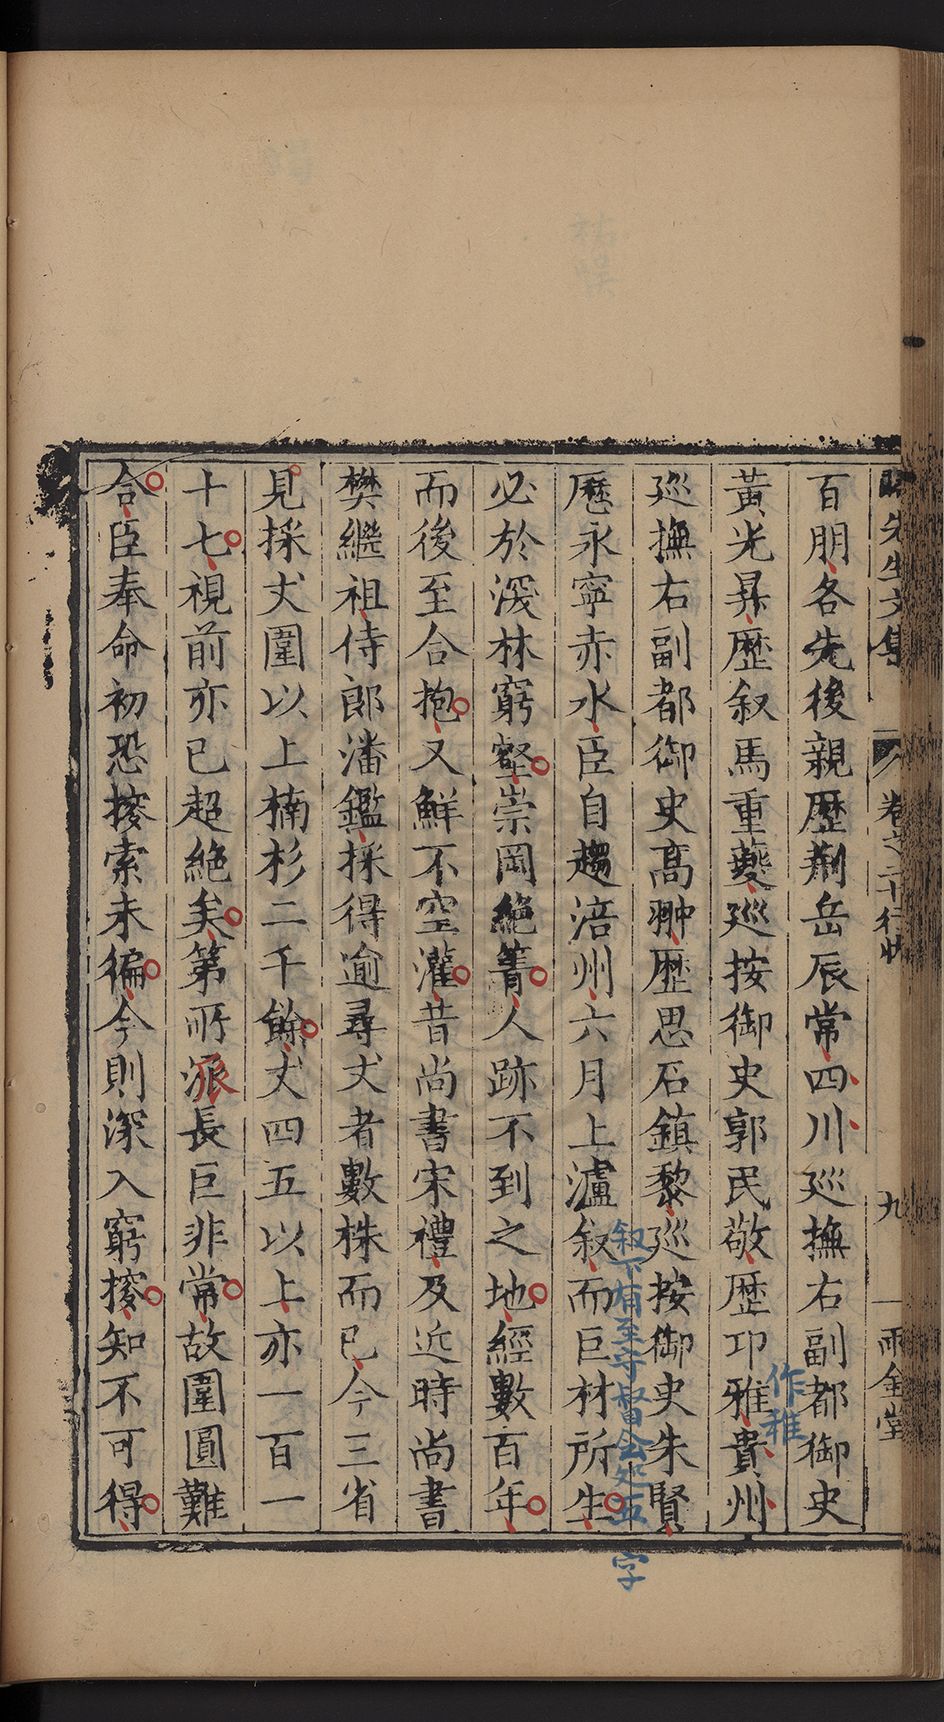 先生文集
卷之二十行狀
九
雨金堂
百朋各先後親歷荆岳辰常四川廵撫右副都御史
黃光昇歷叙馬重夔廵按御史郭民敬歷卭雅貴州
作稚
廵撫右副都御史高翀歷思石鎮黎廵按御史朱賢
歷永寧赤水臣自趨涪州六月上瀘叙而巨材所生
叙下有至
字
必於深林窮壑崇岡絶箐人跡不到之地經數百年
而後至合抱又鮮不空灌昔尚書宋禮及近時尚書
樊繼祖侍郎潘鑑採得逾尋丈者數株而已今三省
見採丈圍以上楠杉二千餘丈四五以上亦一百一
十七視前亦已超絶矣第所派長巨非常故圍圓難
合臣奉命初恐搜索未徧今則深入窮搜知不可得